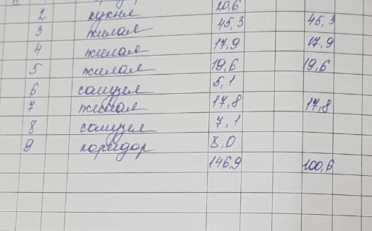 2 кухня 20,6
3 жилая 45,3 45,3
4 жилая 17,9 17,9
5 жилая 19,6 19,6
6 санузел 5,1
7 жилая 17,8 17,8
8 санузел 7,1
9 коридор 8,0
146,9 100,6